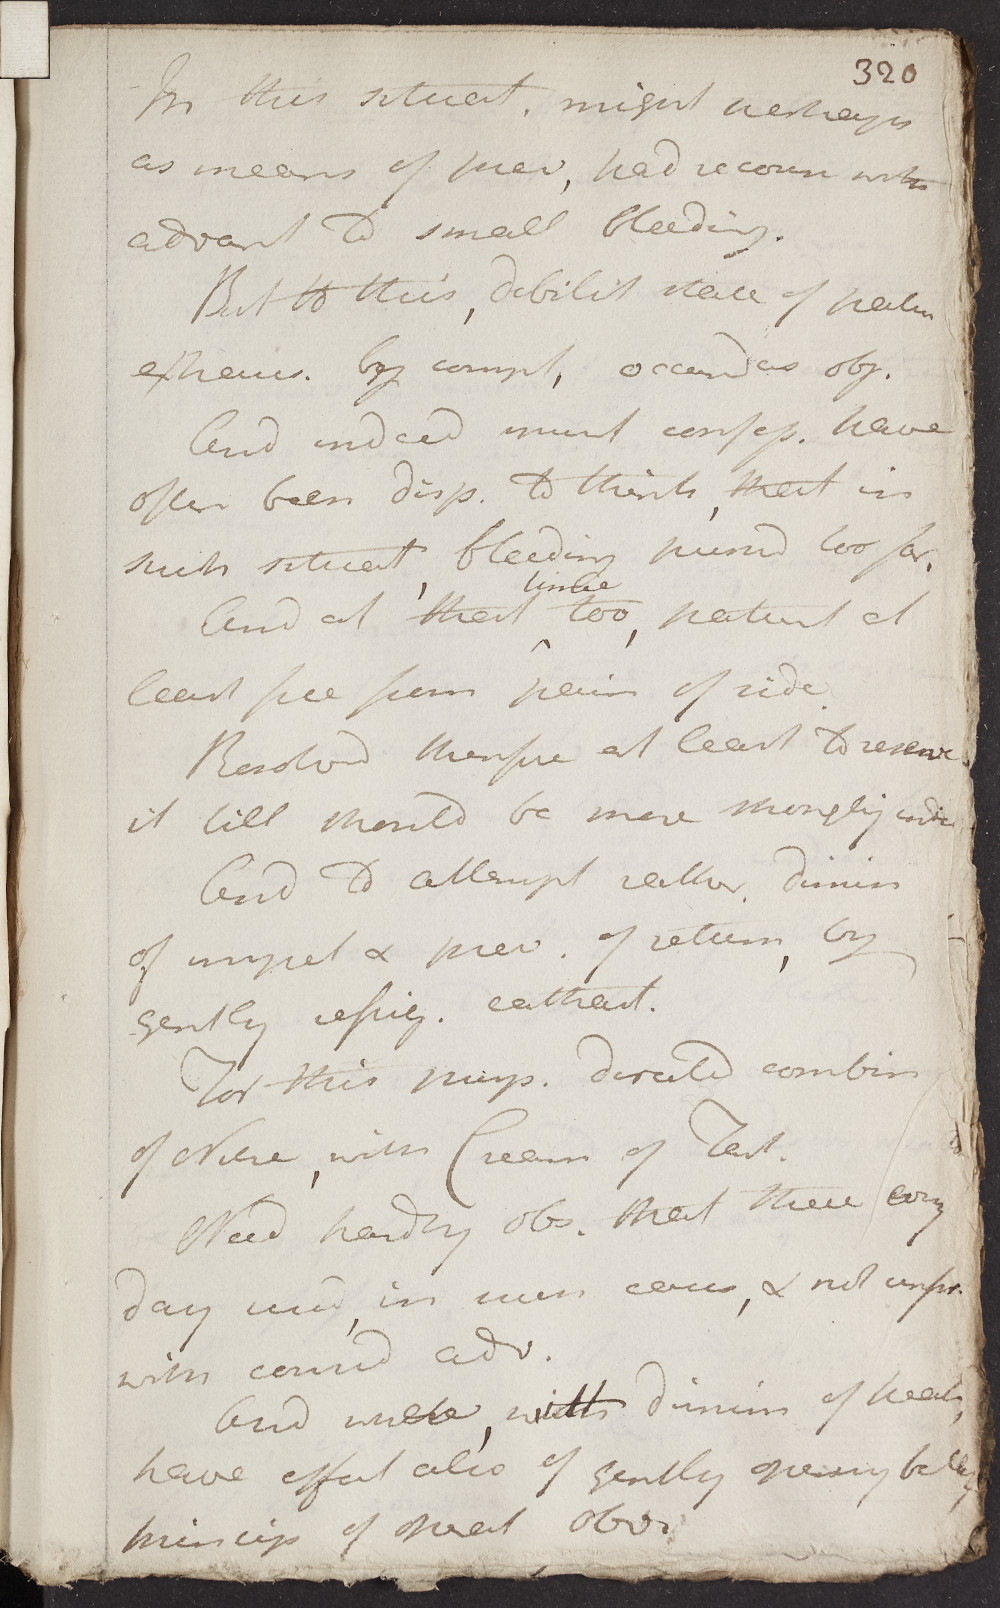 320
In this situat. might perhaps
as means of prev, had recours with
advant to small bleeding.
But to this, debilit state of patien
exhaus. by compt, occurred as obj.
And indeed must confess. have
often been disp. to think, that in
such situat, bleeding pursued too far.
time
And at that too, patient at
least free from pain of side.
Resolved therefore at least to reserve
it till should be more strongly indic
And to attempt rather dimin
of impet & prev. of return, by
gently refrig. cathart.
For this purp. directed combin
of Nitre, with Cream of Tart.
Need hardly obs. that these every
day used, in such cases, &
with consid adv.
And while, with dimin of heat,
have effect also of gently opening belly
princip of operat obv.